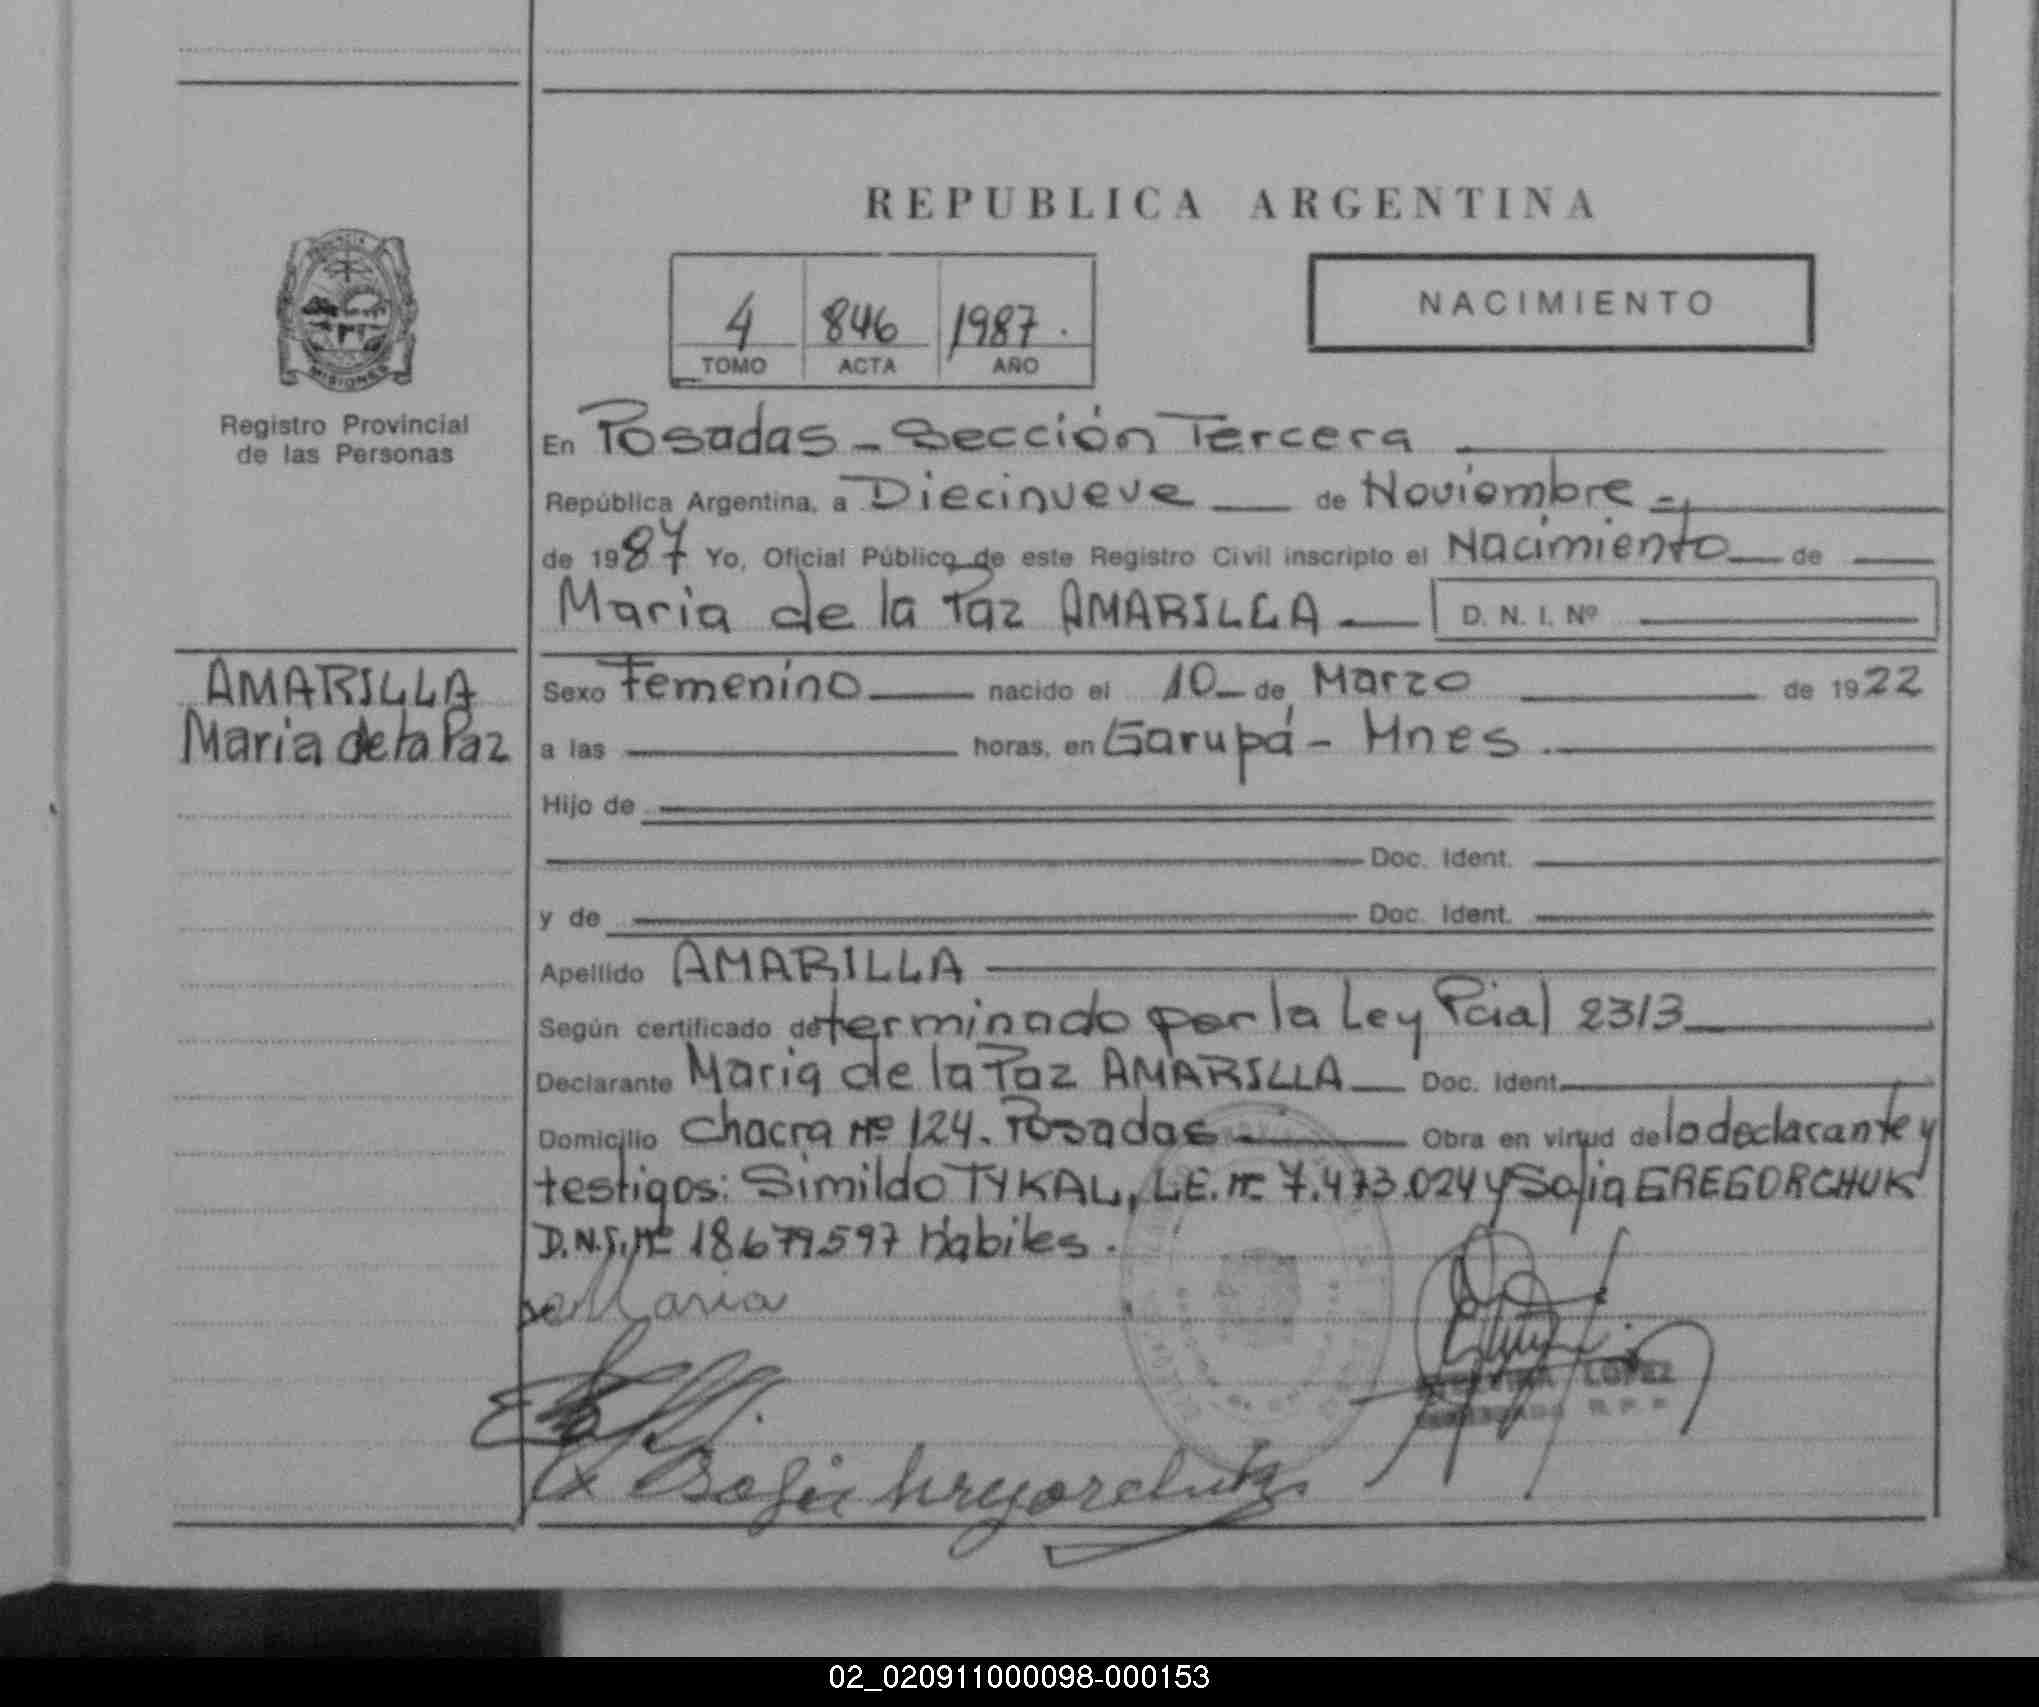 REPUBLICA ARGENTINA
4 846 1987.
TOMO ACTA AÑO
NACIMIENTO
MISIONES
Registro Provincial
de las Personas
En Posadas - Sección Tercera
República Argentina, a Diecinueve de Noviembre
de 1987 Yo, Oficial Público de este Registro Civil inscripto el Nacimiento de
Maria de la Paz AMARILLA D. N. I. Nº
AMARILLA
Maria de la Paz
Sexo Femenino nacido el 10 de Marzo de 1922
a las horas, en Garupá - Mnes.
Hijo de
Doc. Ident.
y de Doc. Ident.
Apellido AMARILLA
Según certificado determinado por la Ley Pcial 2313
Declarante Maria de la Paz AMARILLA Doc. Ident.
Domicilio Chacra Nº 124. Posadas Obra en virtud de la declarante y
testigos: Simildo TYKAL, L.E. Nº 7.473.024 y Sofia GREGORCHUK
D.N.I. Nº 18679597 Habiles.
Maria
LOPEZ
R. P. P.
Sofia
02_020911000098-000153